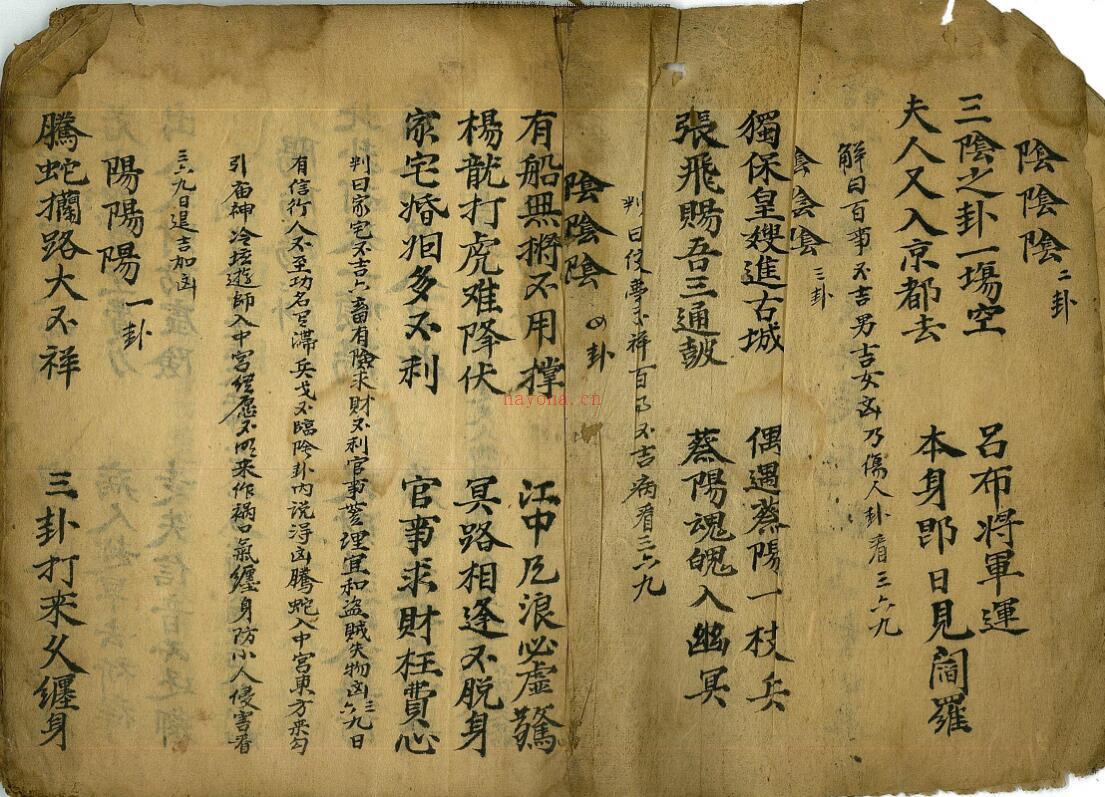 陰陰陰 二卦
三陰之卦一塲空 呂布将軍運
夫人又入京都去 本身即日見閻羅
解曰百事不吉男吉女凶乃傷人卦看三六九
陰陰陰 三卦
獨保皇嫂進古城 偶遇蔡陽一杖兵
張飛賜吾三通皷 蔡陽魂魄入幽冥
判曰夜夢不祥百事不吉病看三六九
陰陰陰 四卦
有船無槳不用撑 江中風浪必虛驚
楊龍打虎难降伏 冥路相逢不脱身
家宅婚姻多不利 官事求財枉費心
判曰家宅不吉六畜有險求財不利官事 理宜和盗賊失物凶三六九日
有信行人不至功名 滯兵戈不臨陰卦內説淂凶騰蛇入中宮東方來勾
引庙神冷坛遊師入中宮 愿不明來作禍口氣纏身防小人侵害看
三六九日退吉加凶
陽陽陽 一卦
騰蛇攔路大不祥 三卦打来久纏身
nayona.cn